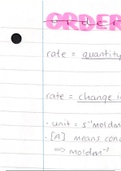 ORDER
rate = quantity
rate = change i
· unit = s⁻¹moldm
[A] means conc
⇒ moldm⁻³